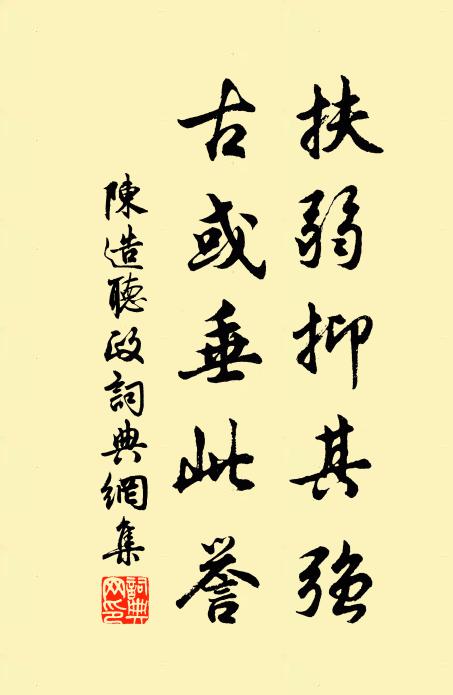 扶弱抑其強
古或垂此譽
陳造聽政詞典網集
詞典網印